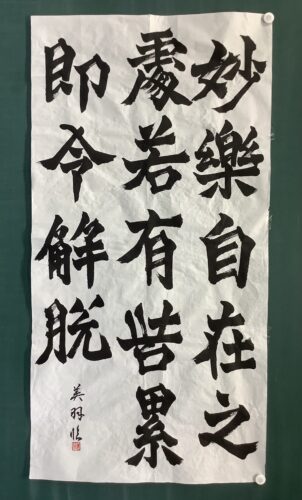 妙樂自在之
處若有苦累
即令解脱
美羽臨